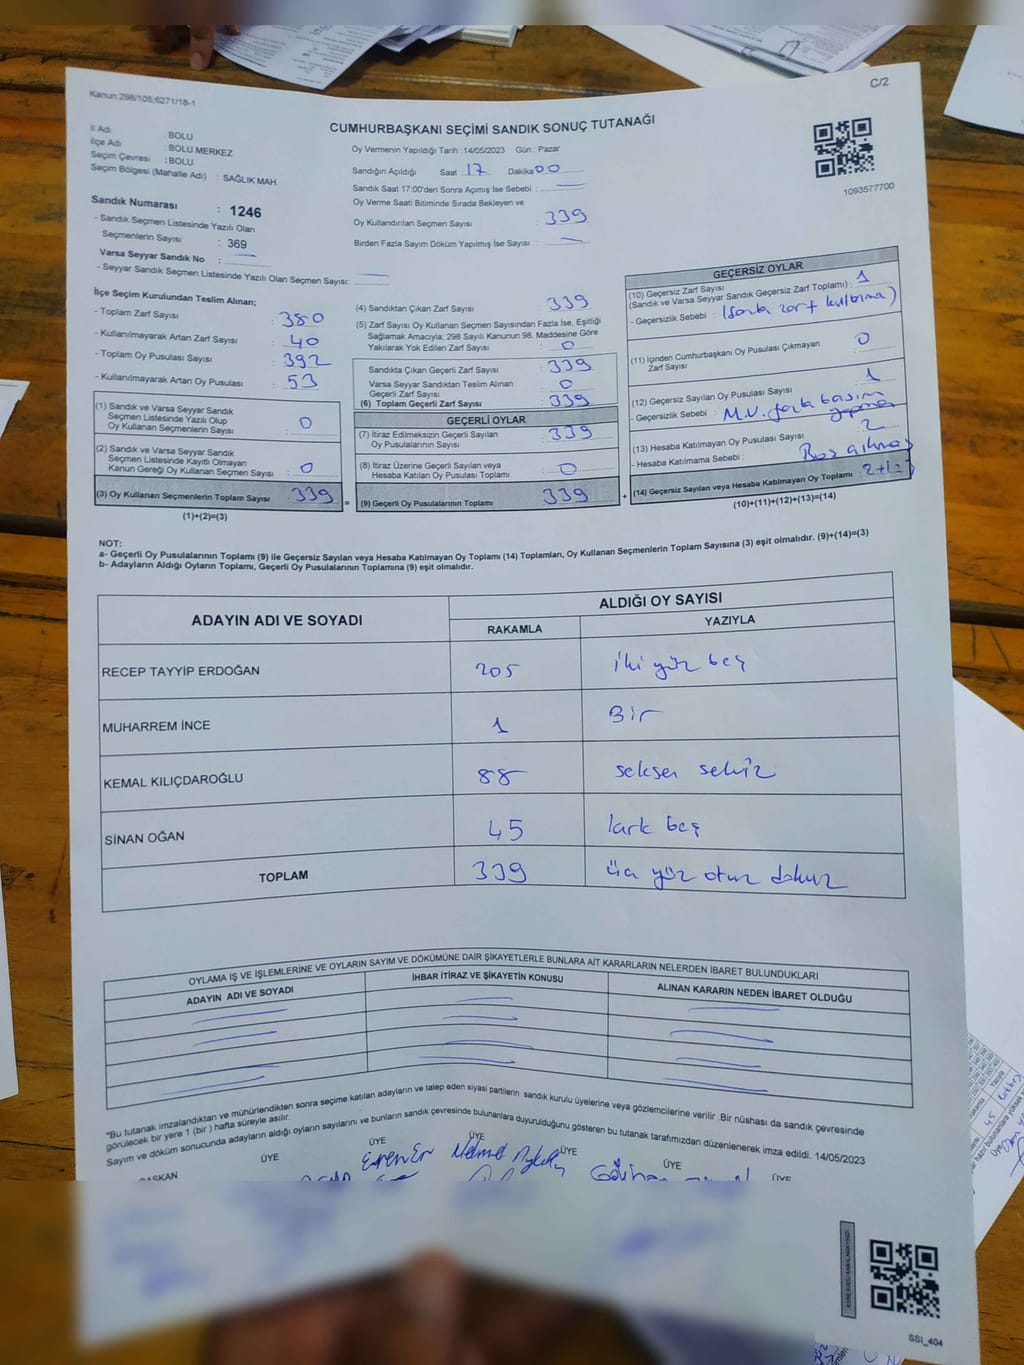 Kanun,298/105;6271/18-1
C/2
CUMHURBAŞKANI SEÇİMİ SANDIK SONUÇ TUTANAĞI
İl Adı : BOLU
İlçe Adı : BOLU MERKEZ
Seçim Çevresi : BOLU
Seçim Bölgesi (Mahalle Adı) : SAĞLIK MAH.
Oy Vermenin Yapıldığı Tarih :14/05/2023 Gün : Pazar
Sandığın Açıldığı Saat 17 Dakika 00
Sandık Saat 17:00'den Sonra Açımış İse Sebebi :
Oy Verme Saati Bitiminde Sırada Bekleyen ve
Oy Kullandırılan Seçmen Sayısı : 339
Birden Fazla Sayım Döküm Yapılmış İse Sayısı :
1093577700
Sandık Numarası : 1246
- Sandık Seçmen Listesinde Yazılı Olan
Seçmenlerin Sayısı : 369
Varsa Seyyar Sandık No :
- Seyyar Sandık Seçmen Listesinde Yazılı Olan Seçmen Sayısı:
İlçe Seçim Kurulundan Teslim Alınan;
- Toplam Zarf Sayısı : 380
- Kullanılmayarak Artan Zarf Sayısı : 40
- Toplam Oy Pusulası Sayısı : 392
- Kullanılmayarak Artan Oy Pusulası : 53
(1) Sandık ve Varsa Seyyar Sandık
Seçmen Listesinde Yazılı Olup
Oy Kullanan Seçmenlerin Sayısı : 0
(2) Sandık ve Varsa Seyyar Sandık
Seçmen Listesinde Kayıtlı Olmayan
Kanun Gereği Oy Kullanan Seçmen Sayısı : 0
(3) Oy Kullanan Seçmenlerin Toplam Sayısı : 339
(1)+(2)=(3)
=
(4) Sandıktan Çıkan Zarf Sayısı : 339
(5) Zarf Sayısı Oy Kullanan Seçmen Sayısından Fazla İse, Eşitliği
Sağlamak Amacıyla; 298 Sayılı Kanunun 98. Maddesine Göre
Yakılarak Yok Edilen Zarf Sayısı : 0
Sandıkta Çıkan Geçerli Zarf Sayısı : 339
Varsa Seyyar Sandıktan Teslim Alınan
Geçerli Zarf Sayısı : 0
(6) Toplam Geçerli Zarf Sayısı : 339
GEÇERLİ OYLAR
(7) İtiraz Edilmeksizin Geçerli Sayılan
Oy Pusulalarının Sayısı : 339
(8) İtiraz Üzerine Geçerli Sayılan veya
Hesaba Katılan Oy Pusulası Toplamı : 0
(9) Geçerli Oy Pusulalarının Toplamı : 339
+
GEÇERSİZ OYLAR
(10) Geçersiz Zarf Sayısı
(Sandık ve Varsa Seyyar Sandık Geçersiz Zarf Toplamı) : 1
- Geçersizlik Sebebi :
(11) İçinden Cumhurbaşkanı Oy Pusulası Çıkmayan
Zarf Sayısı : 0
(12) Geçersiz Sayılan Oy Pusulası Sayısı : 1
- Geçersizlik Sebebi : M.V. fazla basım yapma
(13) Hesaba Katılmayan Oy Pusulası Sayısı : 2
- Hesaba Katılmama Sebebi : Boş
(14) Geçersiz Sayılan veya Hesaba Katılmayan Oy Toplamı :
(10)+(11)+(12)+(13)=(14)
NOT:
a- Geçerli Oy Pusulalarının Toplamı (9) ile Geçersiz Sayılan veya Hesaba Katılmayan Oy Toplamı (14) Toplamları, Oy Kullanan Seçmenlerin Toplam Sayısına (3) eşit olmalıdır. (9)+(14)=(3)
b- Adayların Aldığı Oyların Toplamı, Geçerli Oy Pusulalarının Toplamına (9) eşit olmalıdır.
ADAYIN ADI VE SOYADI
ALDIĞI OY SAYISI
RAKAMLA YAZIYLA
RECEP TAYYİP ERDOĞAN 205 iki yüz beş
MUHARREM İNCE 1 Bir
KEMAL KILIÇDAROĞLU 88 seksen sekiz
SİNAN OĞAN 45 kırk beş
TOPLAM 339 üç yüz otuz dokuz
OYLAMA İŞ VE İŞLEMLERİNE VE OYLARIN SAYIM VE DÖKÜMÜNE DAİR ŞİKAYETLERLE BUNLARA AİT KARARLARIN NELERDEN İBARET BULUNDUKLARI
ADAYIN ADI VE SOYADI İHBAR İTİRAZ VE ŞİKAYETİN KONUSU ALINAN KARARIN NEDEN İBARET OLDUĞU
*Bu tutanak imzalandıktan ve mühürlendikten sonra seçime katılan adayların ve talep eden siyasi partilerin sandık kurulu üyelerine veya gözlemcilerine verilir .Bir nüshası da sandık çevresinde
görülecek bir yere 1 (bir ) hafta süreyle asılır.
Sayım ve döküm sonucunda adayların aldığı oyların sayılarını ve bunların sandık çevresinde bulunanlara duyurulduğunu gösteren bu tutanak tarafımızdan düzenlenerek imza edildi. 14/05/2023
BAŞKAN ÜYE ÜYE ÜYE ÜYE ÜYE ÜYE
Evren Er Mehmet
Gökhan
SSI_404